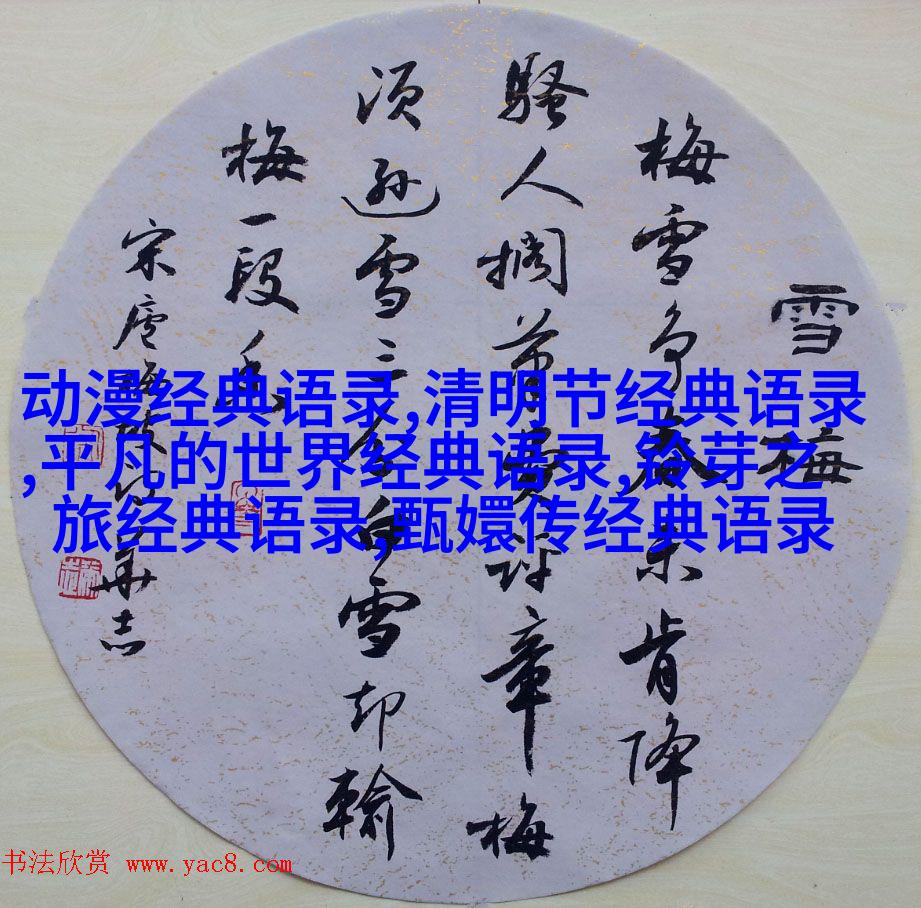 雪梅
梅雪争春未肯降
骚人搁笔费评章梅
须逊雪三分白雪却輸
梅一段香
宋卢梅坡
志
动漫经典语录,清明节经典语录
,平凡的世界经典语录,铃芽之
旅经典语录,甄嬛传经典语录
书法欣赏 www.yac8.com